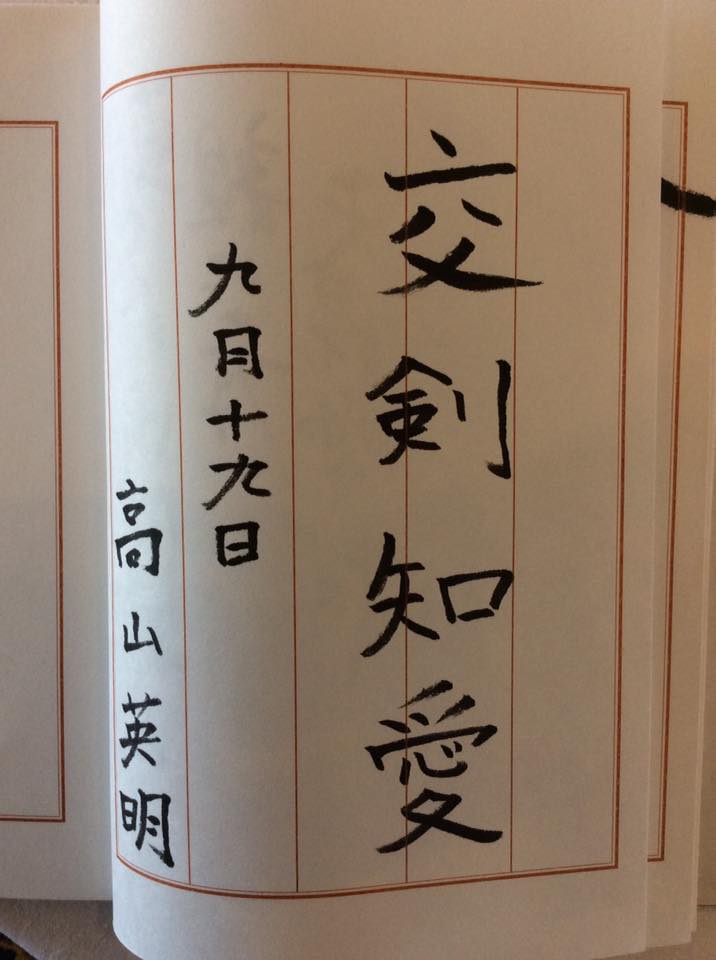 交剣知愛
九月十九日
高山英明